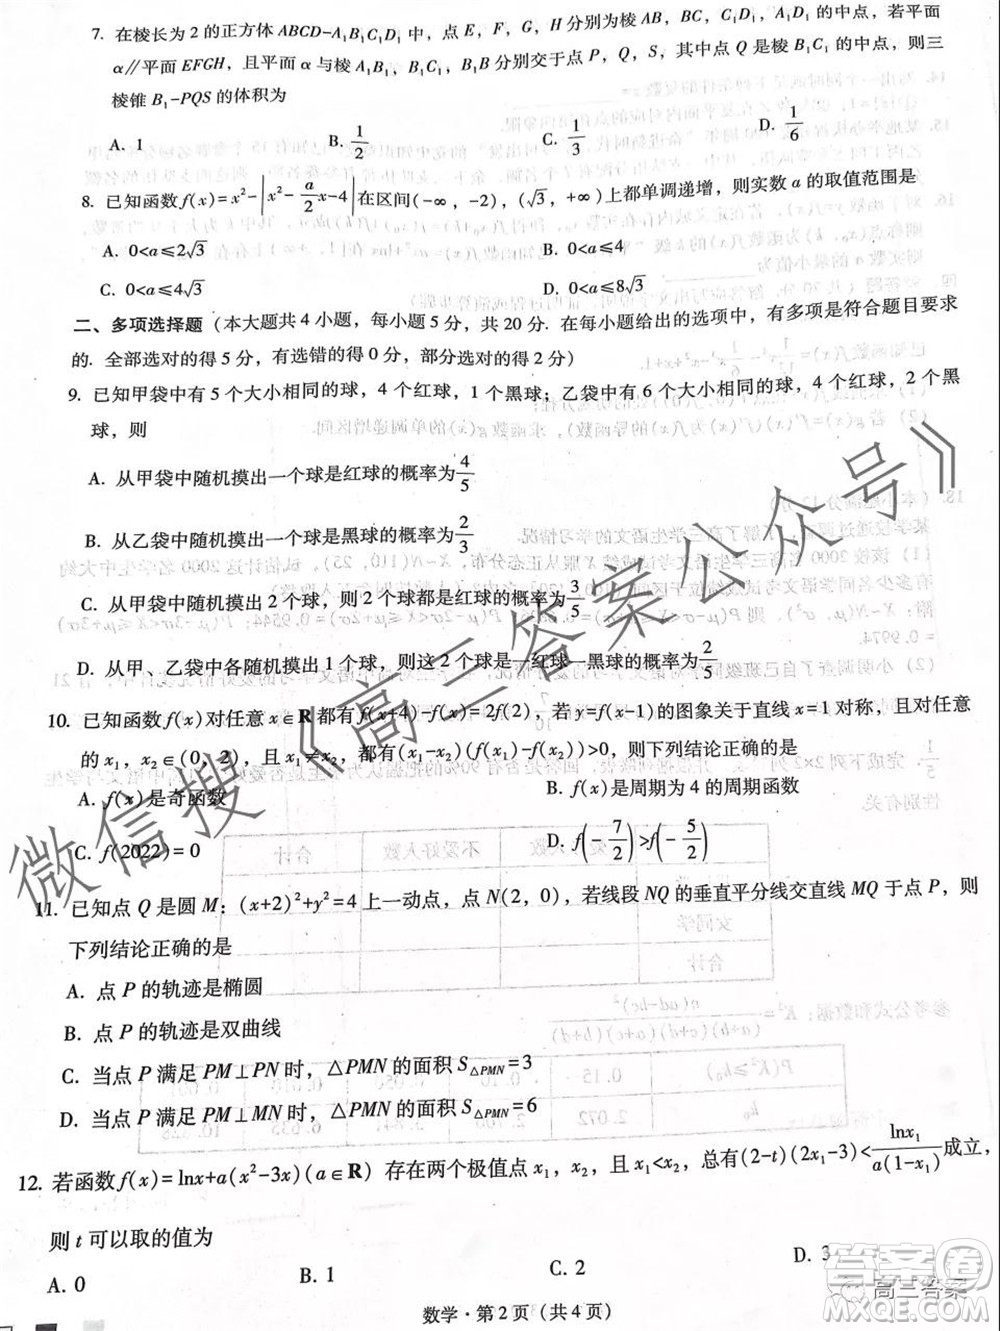 7. 在棱长为 2 的正方体 ABCD-A₁B₁C₁D₁ 中，点 E，F，G，H 分别为棱 AB，BC，C₁D₁，A₁D₁ 的中点，若平面
α∥平面 EFGH，且平面 α 与棱 A₁B₁，B₁C₁，B₁B 分别交于点 P，Q，S，其中点 Q 是棱 B₁C₁ 的中点，则三
棱锥 B₁-PQS 的体积为
A. 1 B. 1/2 C. 1/3 D. 1/6
8. 已知函数 f(x)=x²-|x²-(a/2)x-4| 在区间(-∞，-2)，(√3，+∞)上都单调递增，则实数 a 的取值范围是
A. 0<a≤2√3 B. 0<a≤4
C. 0<a≤4√3 D. 0<a≤8√3
二、多项选择题（本大题共 4 小题，每小题 5 分，共 20 分. 在每小题给出的选项中，有多项是符合题目要求
的. 全部选对的得 5 分，有选错的得 0 分，部分选对的得 2 分）
9. 已知甲袋中有 5 个大小相同的球，4 个红球，1 个黑球；乙袋中有 6 个大小相同的球，4 个红球，2 个黑
球，则
A. 从甲袋中随机摸出一个球是红球的概率为 4/5
B. 从乙袋中随机摸出一个球是黑球的概率为 2/3
C. 从甲袋中随机摸出 2 个球，则 2 个球都是红球的概率为 3/5
D. 从甲、乙袋中各随机摸出 1 个球，则这 2 个球是一红球一黑球的概率为 2/5
10. 已知函数 f(x)对任意 x∈R 都有 f(x+4)-f(x)=2f(2)，若 y=f(x-1)的图象关于直线 x=1 对称，且对任意
的 x₁，x₂∈(0，2)，且 x₁≠x₂，都有(x₁-x₂)(f(x₁)-f(x₂))>0，则下列结论正确的是
A. f(x)是奇函数 B. f(x)是周期为 4 的周期函数
C. f(2022)=0 D. f(-7/2)>f(-5/2)
11. 已知点 Q 是圆 M：(x+2)²+y²=4 上一动点，点 N(2，0)，若线段 NQ 的垂直平分线交直线 MQ 于点 P，则
下列结论正确的是
A. 点 P 的轨迹是椭圆
B. 点 P 的轨迹是双曲线
C. 当点 P 满足 PM⊥PN 时，△PMN 的面积 S△PMN=3
D. 当点 P 满足 PM⊥MN 时，△PMN 的面积 S△PMN=6
12. 若函数 f(x)=lnx+a(x²-3x)(a∈R) 存在两个极值点 x₁，x₂，且 x₁<x₂，总有(2-t)(2x₁-3)<lnx₁/a(1-x₁) 成立，
则 t 可以取的值为
A. 0 B. 1 C. 2 D. 3
数学·第 2 页（共 4 页）
微信搜《高三答案公众号》
答案圈
高三答案
MXQE.COM